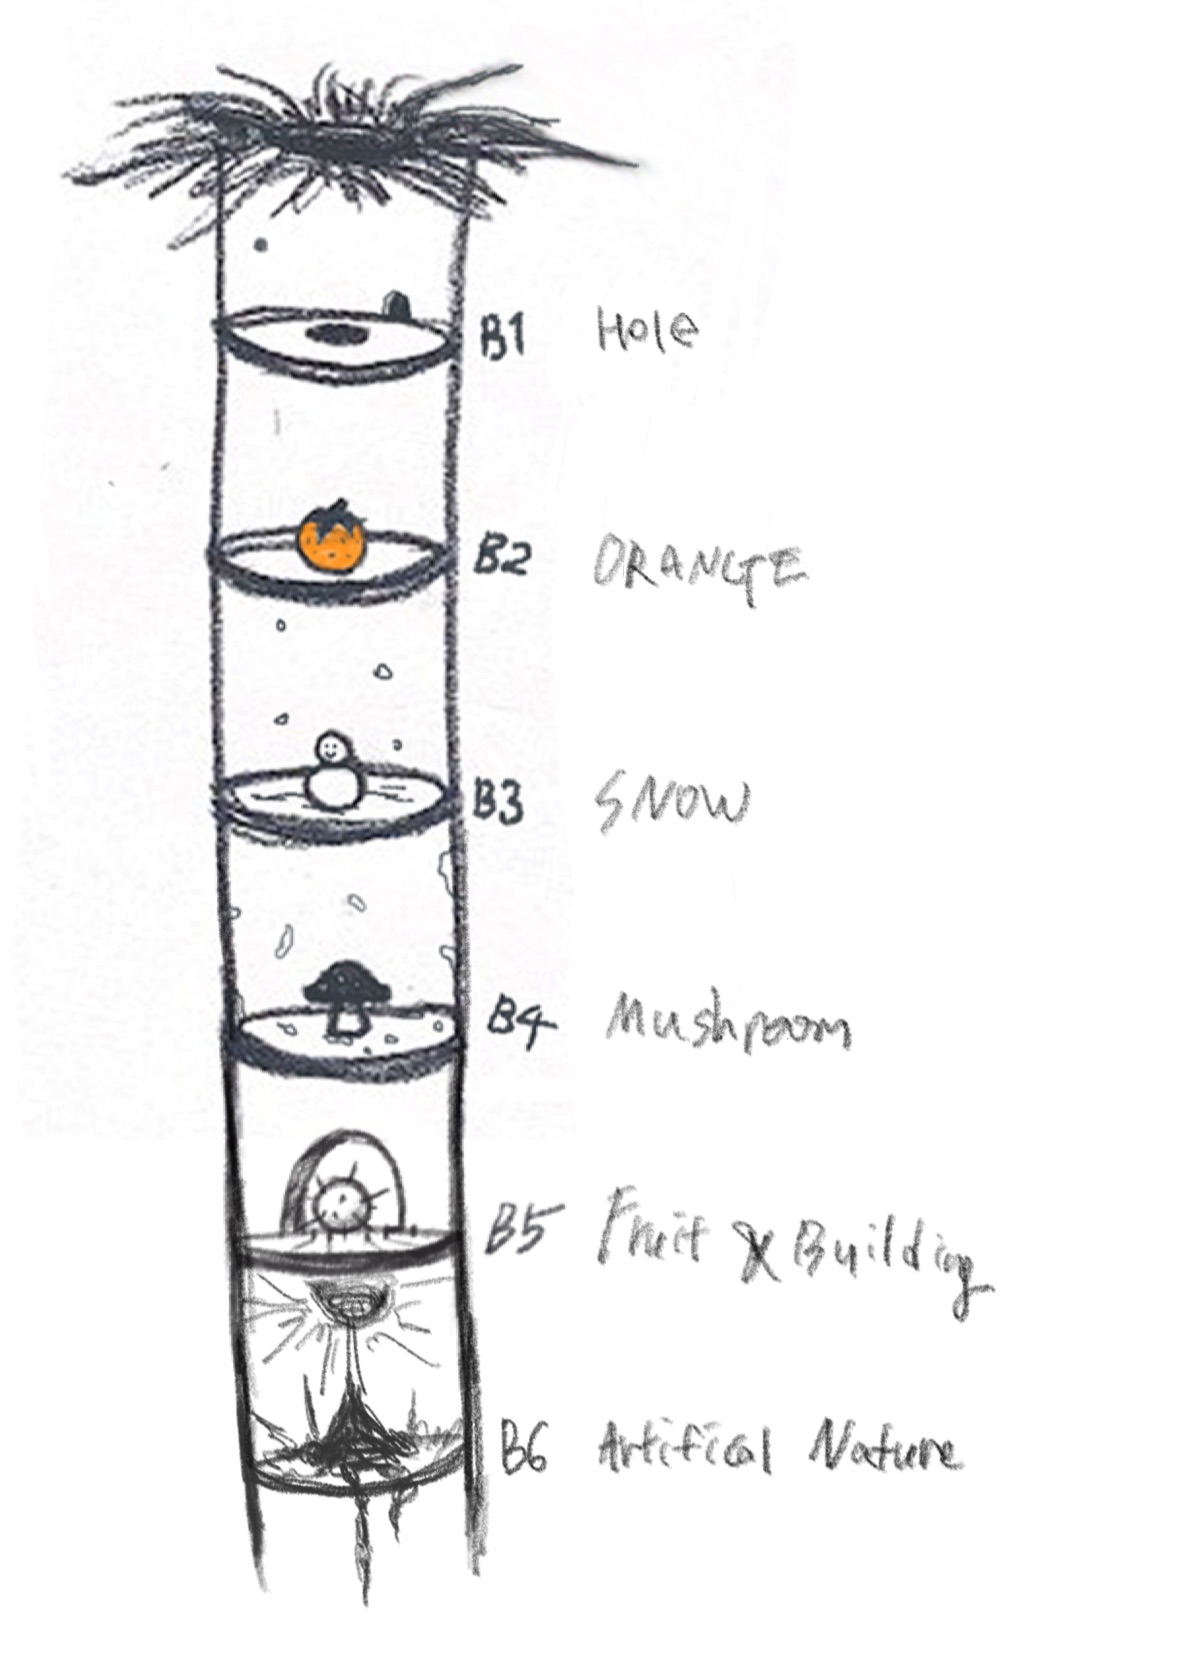 B1 Hole
B2 ORANGE
B3 SNOW
B4 Mushroom
B5 Fruit X Building
B6 Artifical Nature